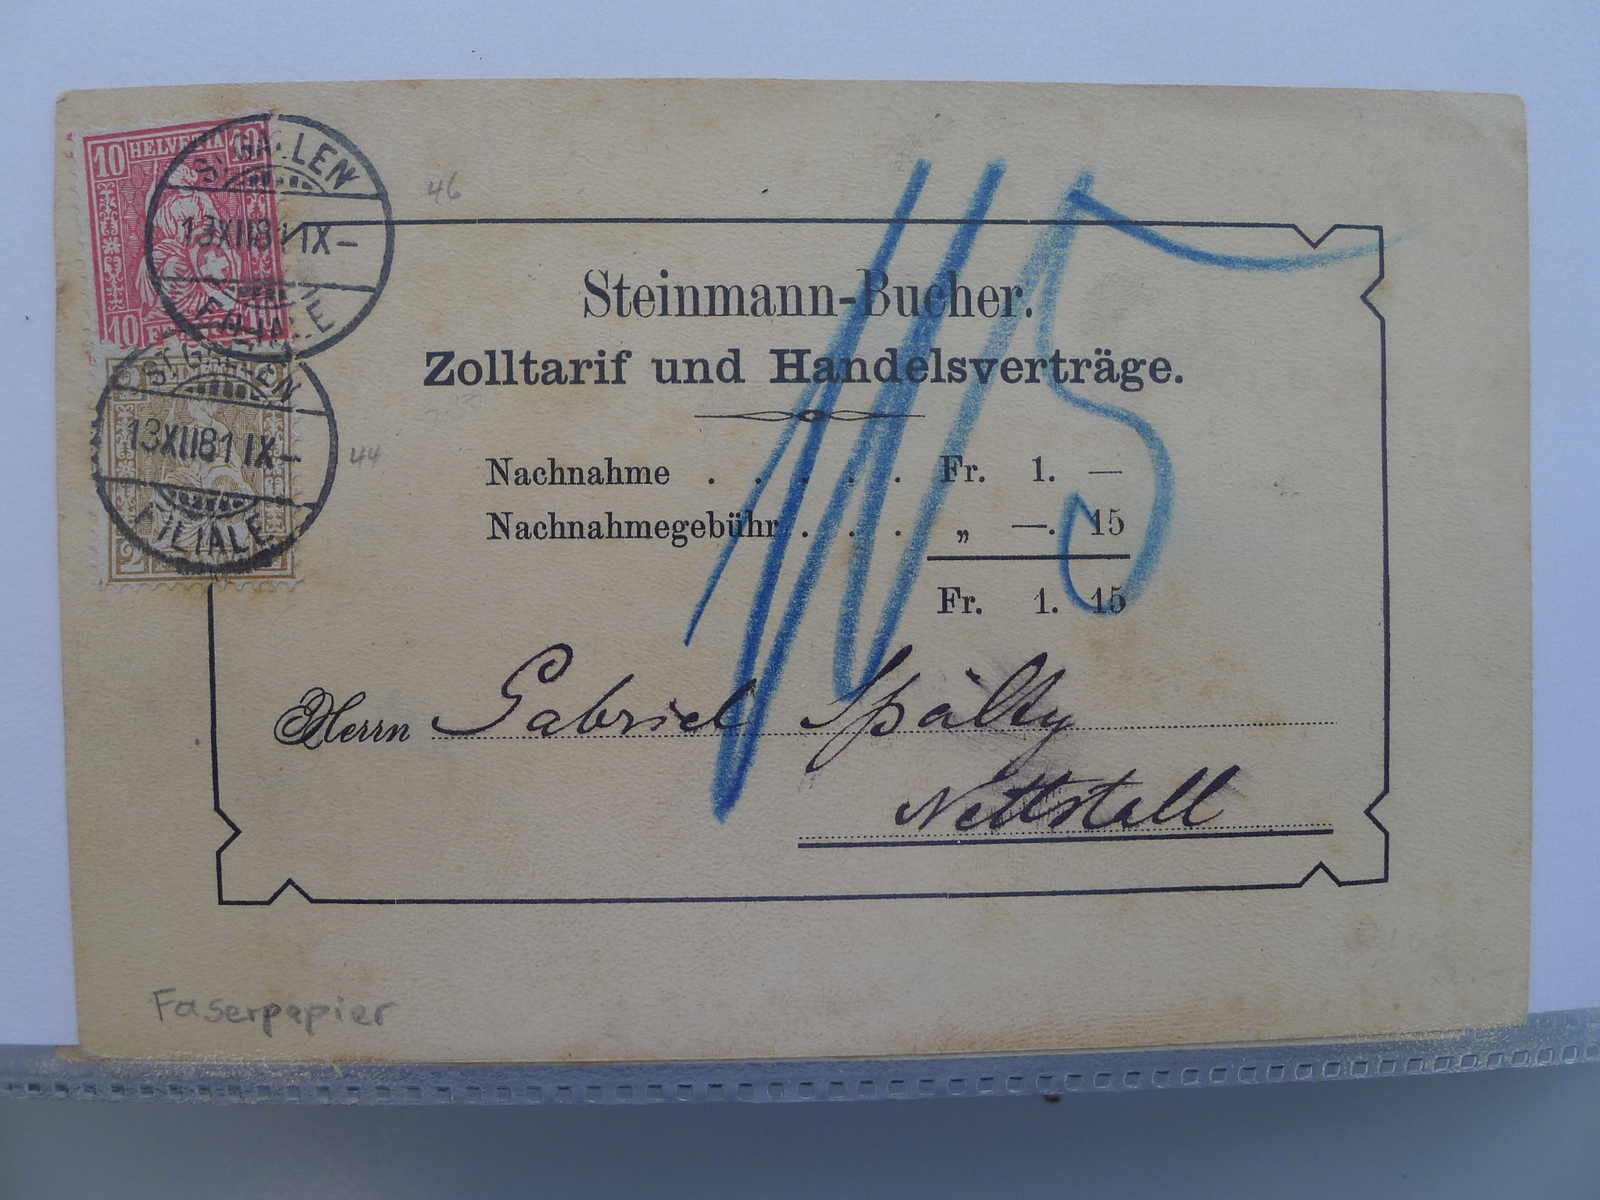 10 HELVETIA 10
ST. GALLEN
13XII81 IX-
FILIALE
10
46
ST. GALLEN
13XII81 IX-
FILIALE
2
44
115
Steinmann-Bucher.
Zolltarif und Handelsverträge.
Nachnahme . . . . . Fr. 1. —
Nachnahmegebühr . . . „ —. 15
Fr. 1. 15
Herrn Gabriel Spälty
Nettstall
Faserpapier